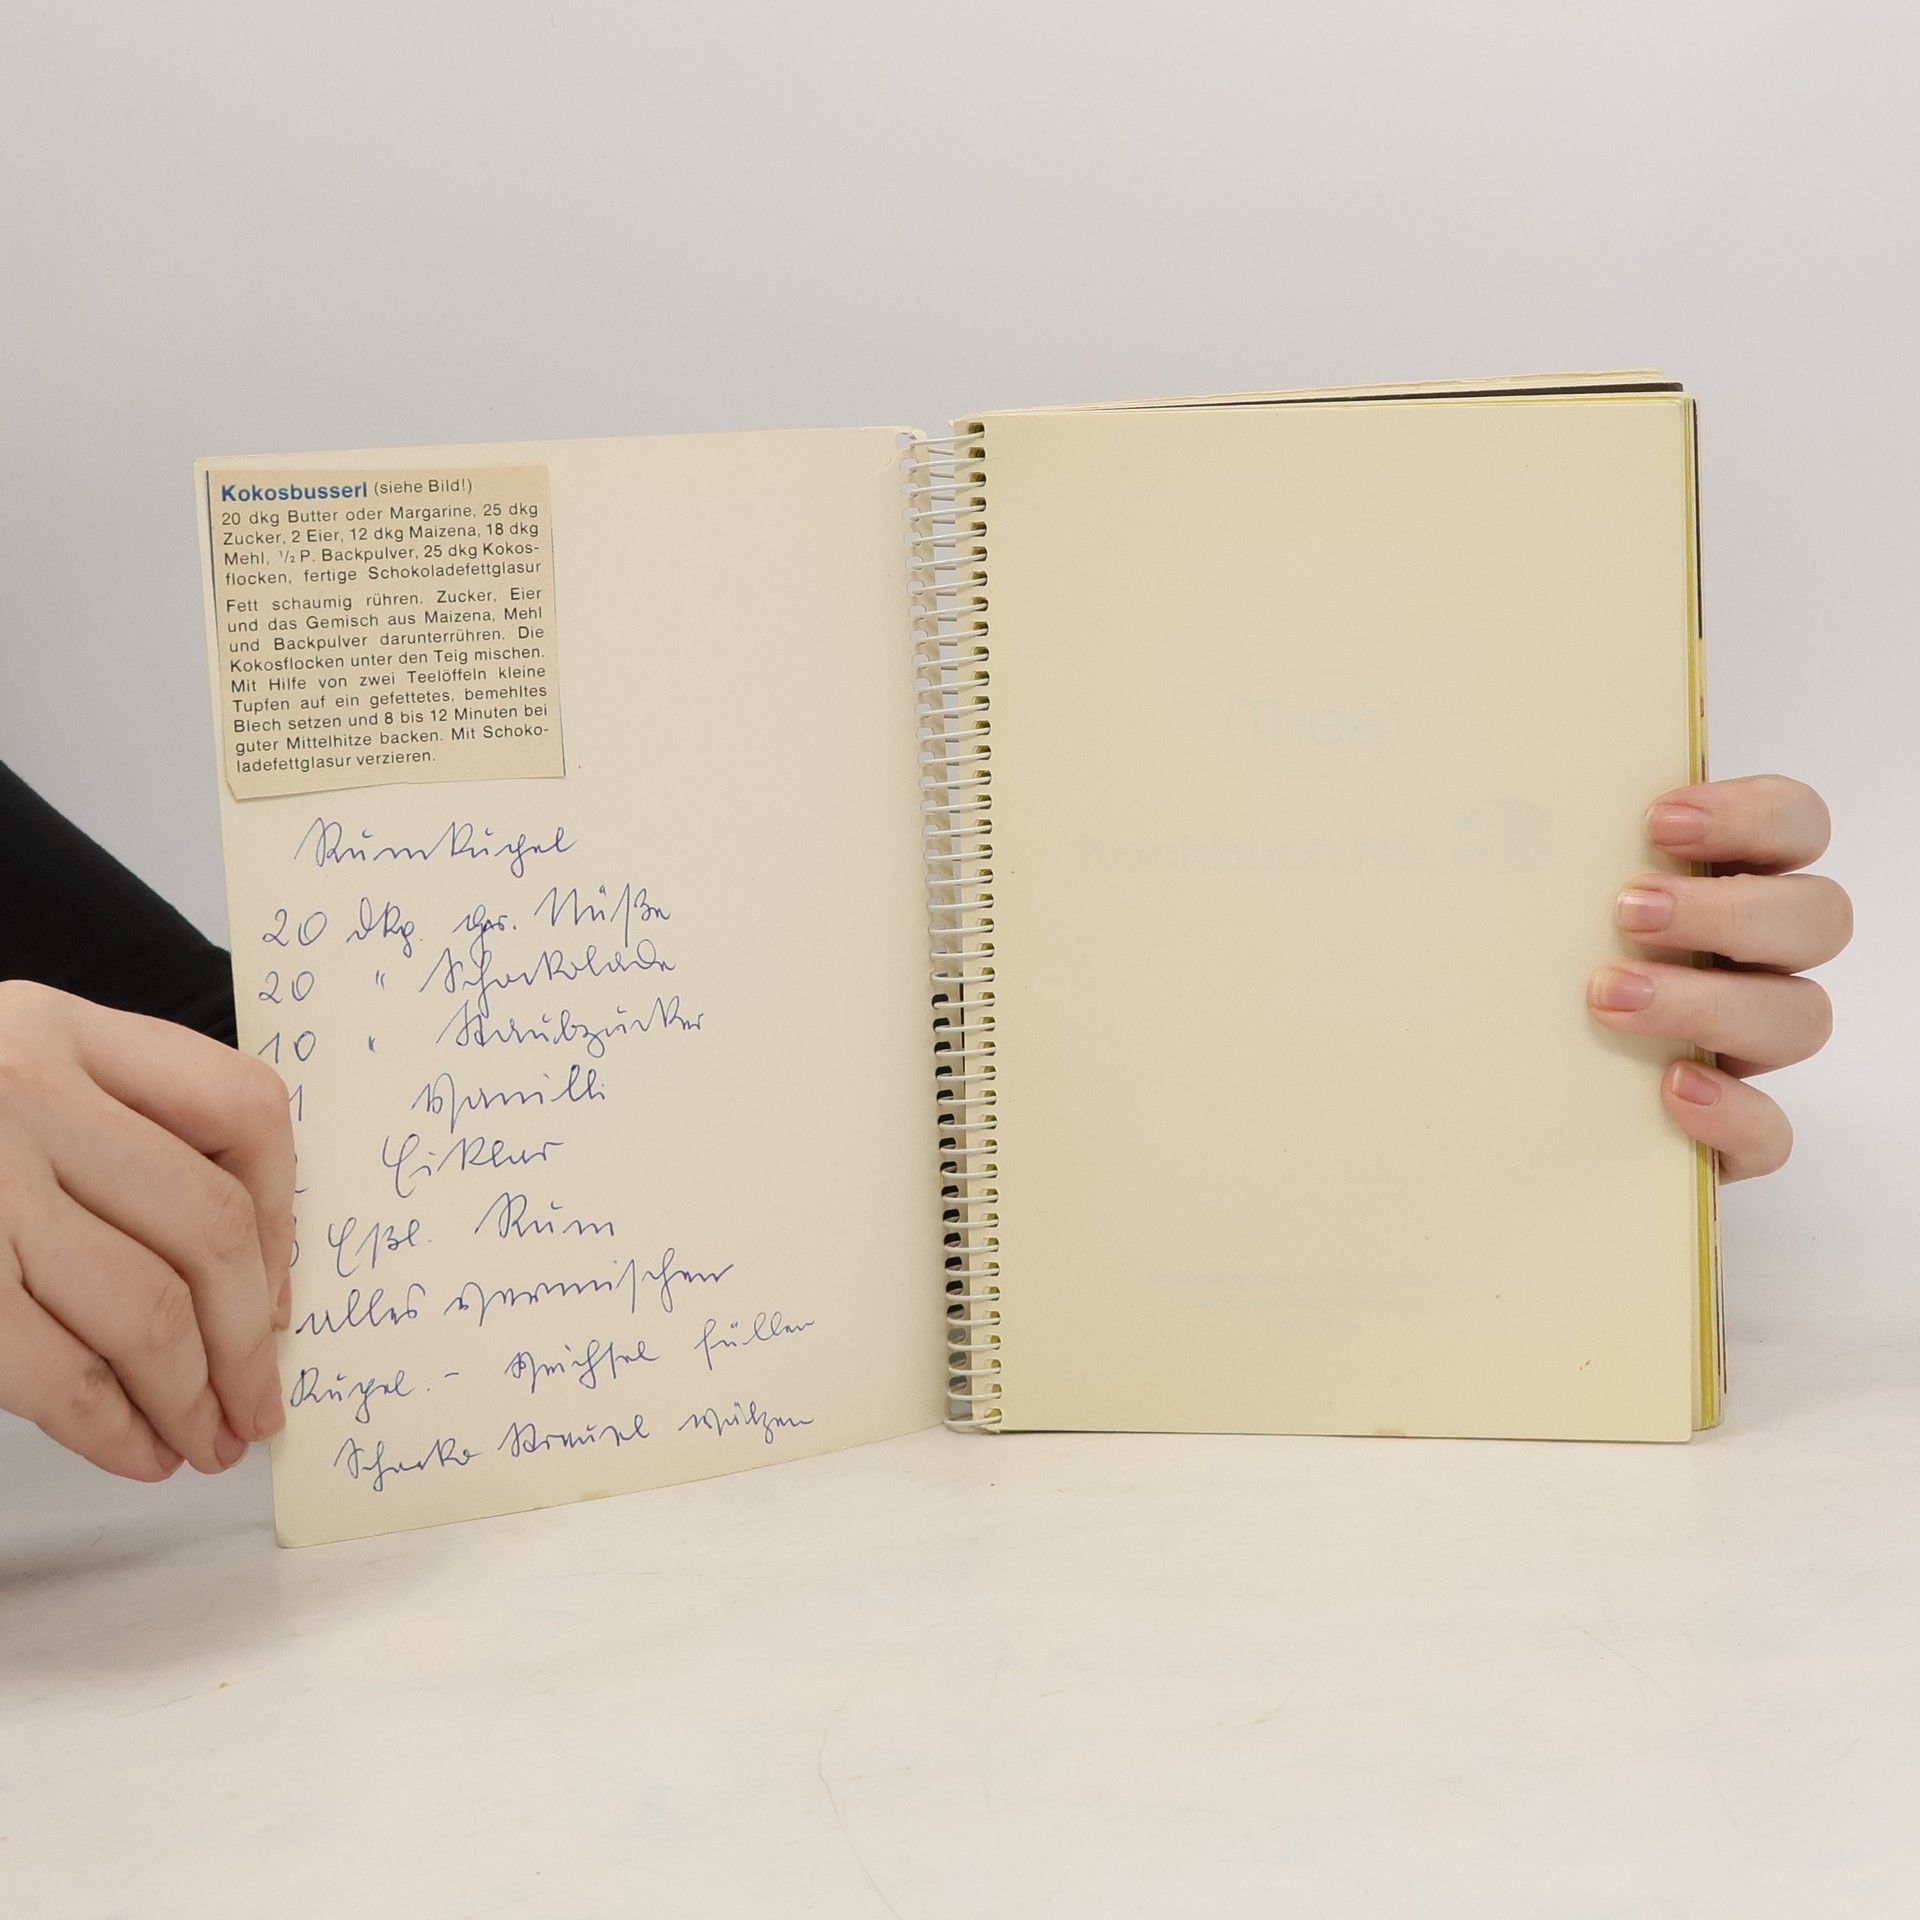 Kokosbusserl (siehe Bild!)
20 dkg Butter oder Margarine, 25 dkg
Zucker, 2 Eier, 12 dkg Maizena, 18 dkg
Mehl, ½ P. Backpulver, 25 dkg Kokos-
flocken, fertige Schokoladefettglasur
Fett schaumig rühren. Zucker, Eier
und das Gemisch aus Maizena, Mehl
und Backpulver darunterrühren. Die
Kokosflocken unter den Teig mischen.
Mit Hilfe von zwei Teelöffeln kleine
Tupfen auf ein gefettetes, bemehltes
Blech setzen und 8 bis 12 Minuten bei
guter Mittelhitze backen. Mit Schoko-
ladefettglasur verzieren.
Rumkugel
20 dkg. ger. Nüße
20 " Schockolade
10 " Staubzucker
1 Vanilli
Eiklar
Eßl. Rum
alles vermischen
Kugel. - Weichsel füllen
Schocko Streusel wälzen
Thea